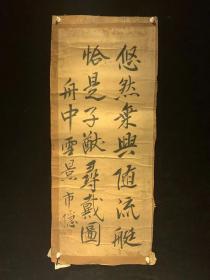 悠然乗興随流艇
恰是子猷尋戴圖
舟中雪景 市隠